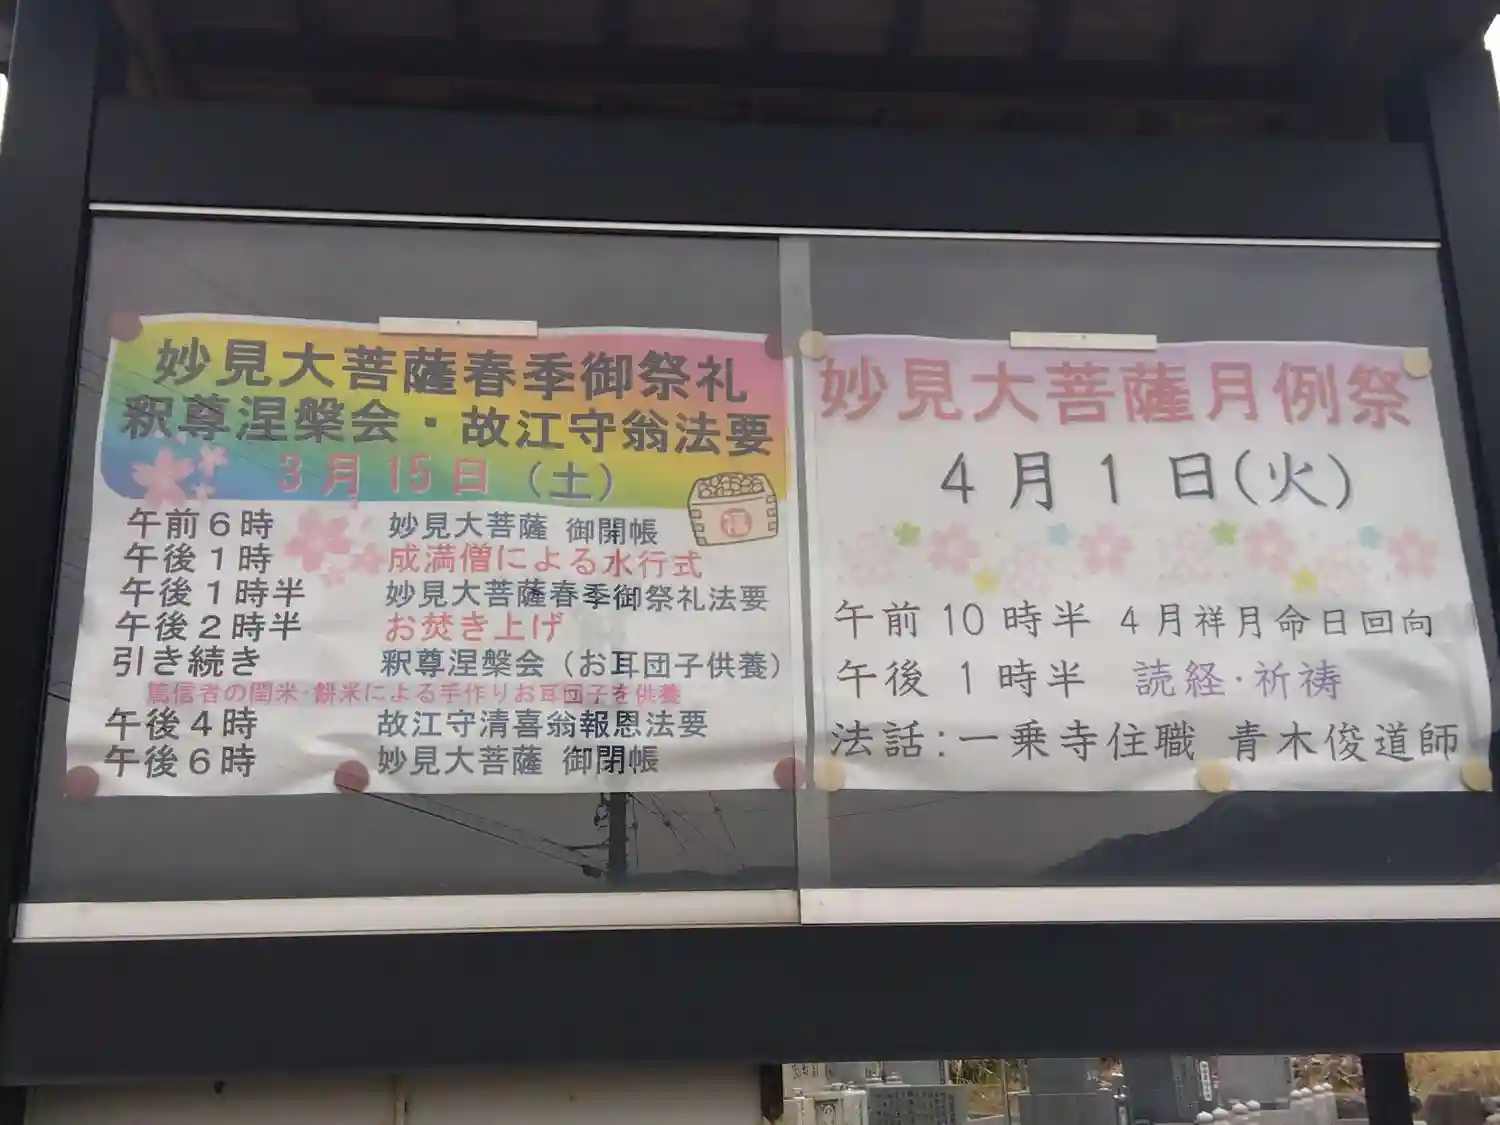 妙見大菩薩春季御祭礼
釈尊涅槃会・故江守翁法要
3月15日（土）
福
午前6時 妙見大菩薩 御開帳
午後1時 成満僧による水行式
午後1時半 妙見大菩薩春季御祭礼法要
午後2時半 お焚き上げ
引き続き 釈尊涅槃会（お耳団子供養）
篤信者の閏米・餅米による手作りお耳団子を供養
午後4時 故江守清喜翁報恩法要
午後6時 妙見大菩薩 御閉帳
妙見大菩薩月例祭
4月1日(火)
午前10時半 4月祥月命日回向
午後1時半 読経・祈祷
法話:一乗寺住職 青木俊道師